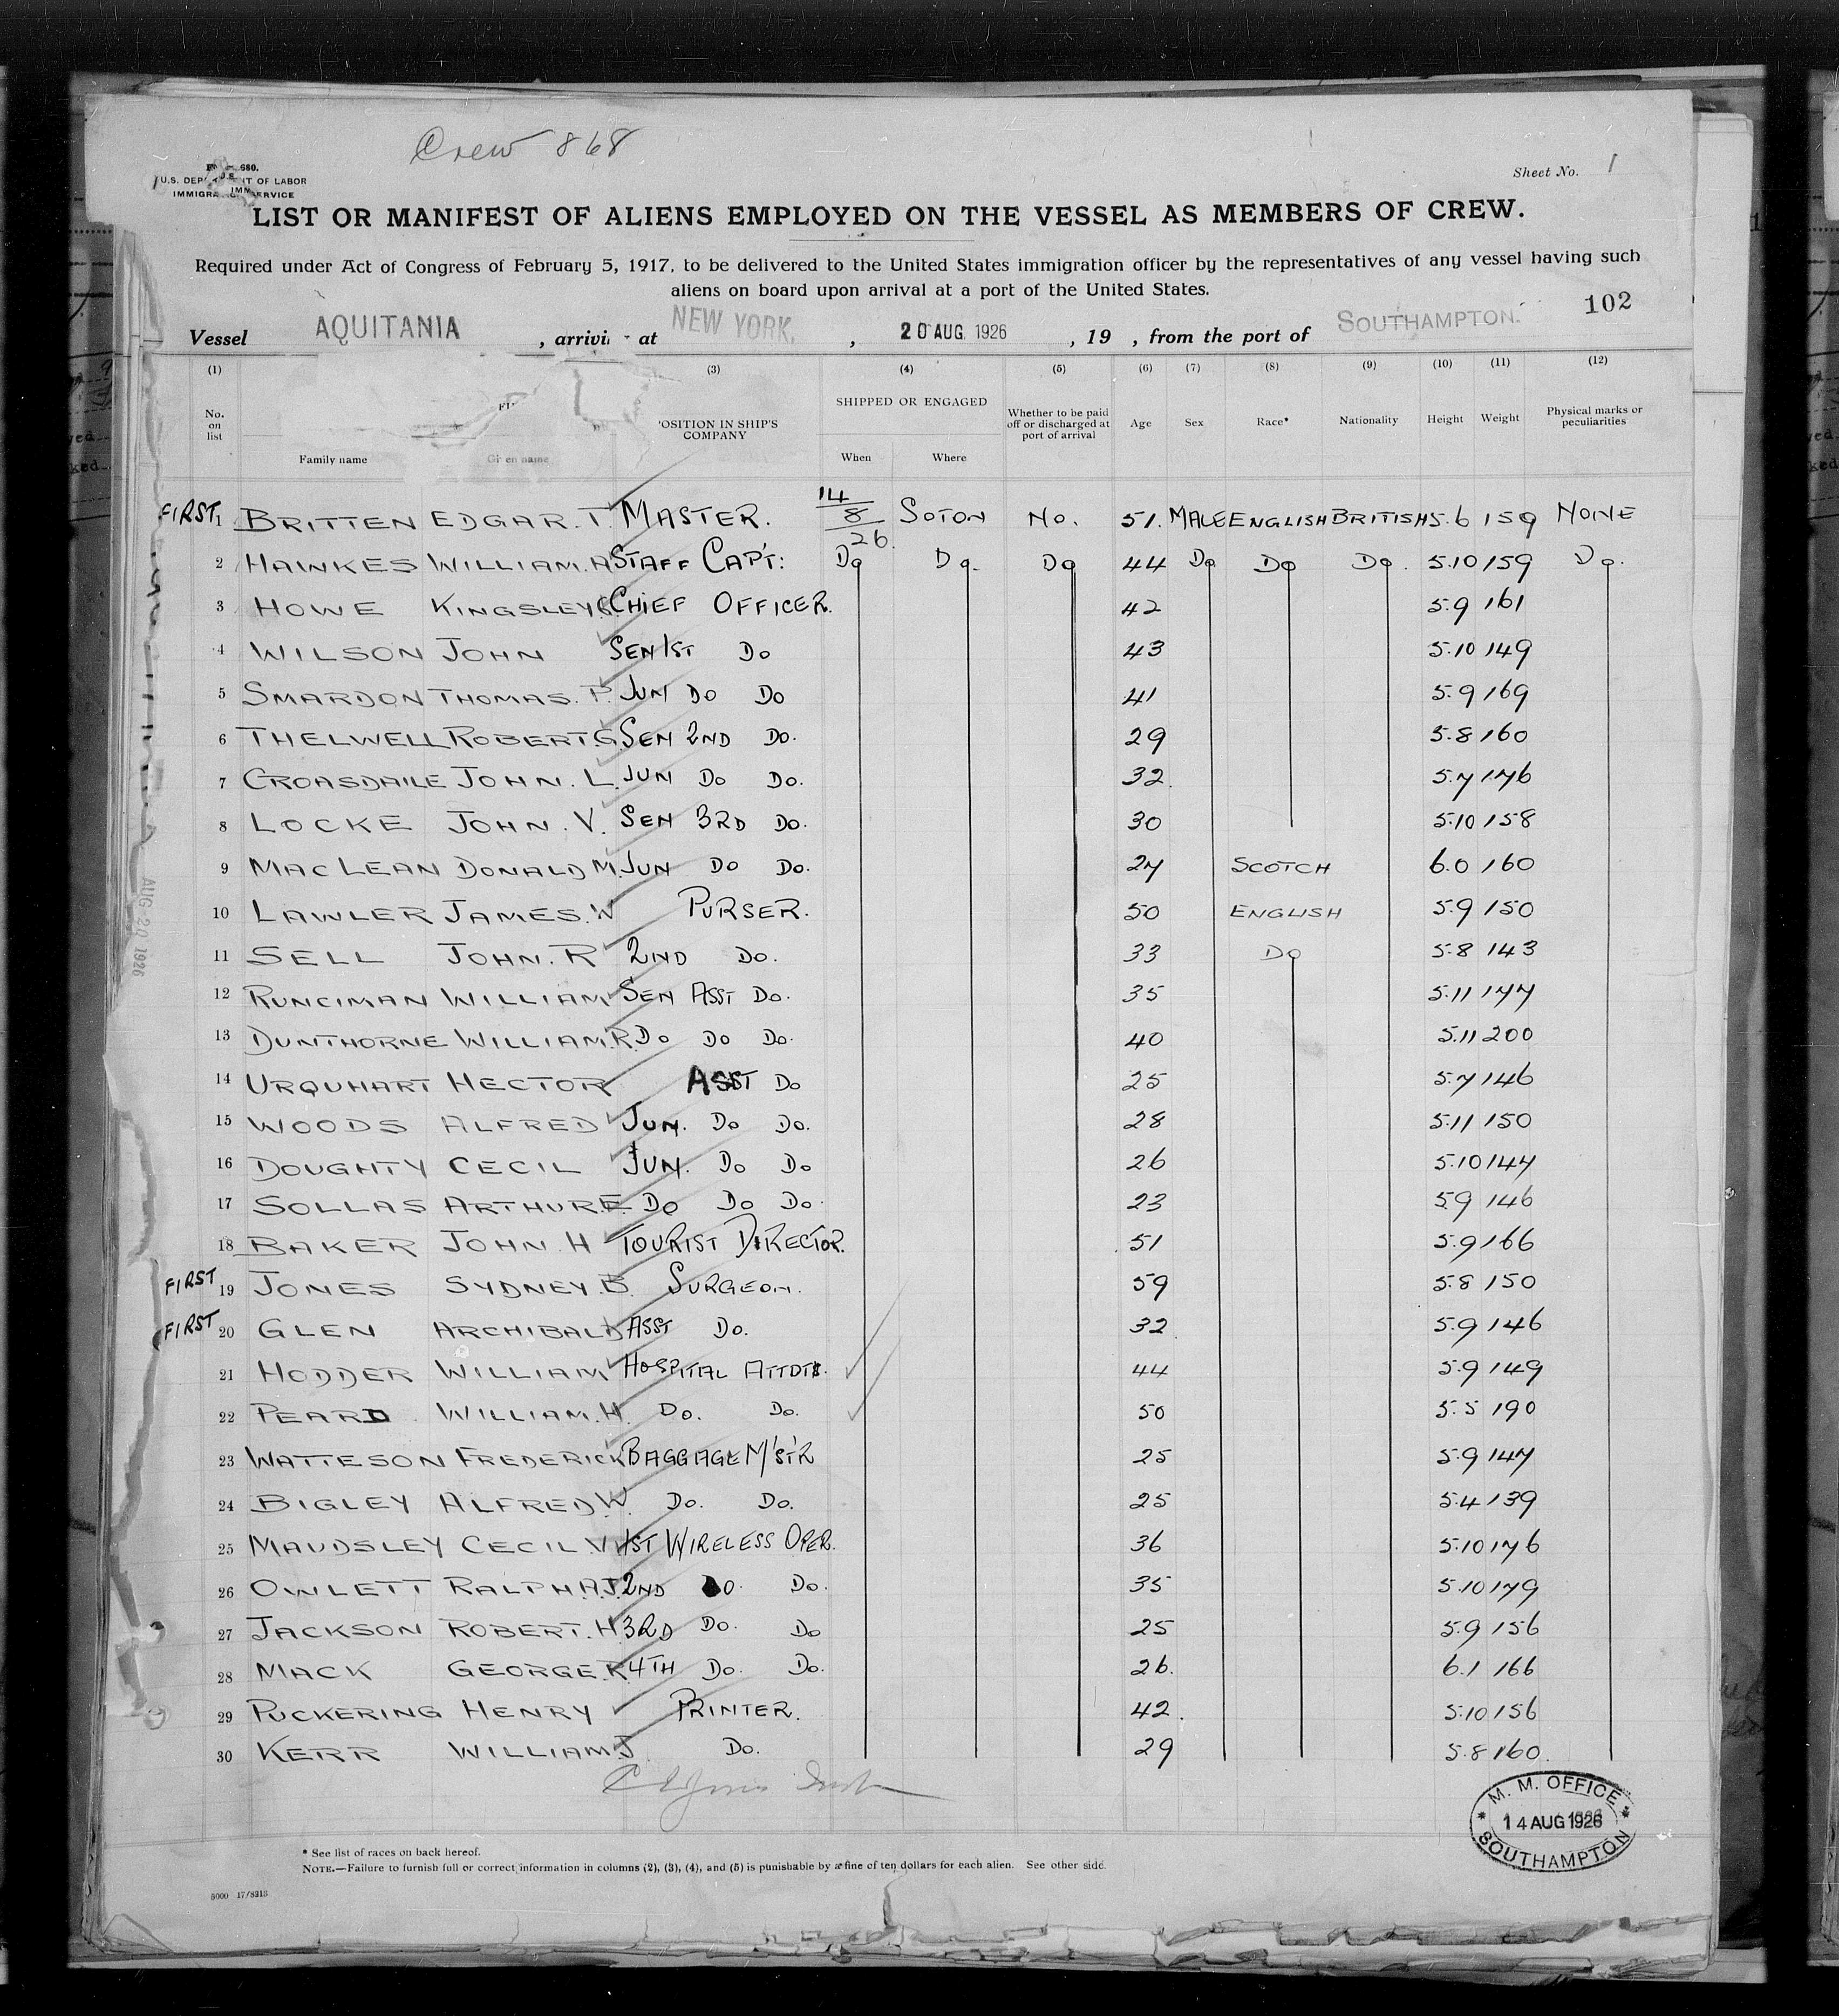 Crew 868
680.
U.S. DEP T OF LABOR
IMMIGRA SERVICE
Sheet No. 1
LIST OR MANIFEST OF ALIENS EMPLOYED ON THE VESSEL AS MEMBERS OF CREW.
Required under Act of Congress of February 5, 1917, to be delivered to the United States immigration officer by the representatives of any vessel having such
aliens on board upon arrival at a port of the United States.
102
Vessel AQUITANIA , arrivi at NEW YORK. , 20 AUG 1926 , 19 , from the port of SOUTHAMPTON.
(1) (3) (4) (5) (6) (7) (8) (9) (10) (11) (12)
No. on list Family name Gi en name OSITION IN SHIP'S COMPANY SHIPPED OR ENGAGED When Where Whether to be paid off or discharged at port of arrival Age Sex Race* Nationality Height Weight Physical marks or peculiarities
FIRST 1 BRITTEN EDGAR. T. MASTER. 14/8/26 SOTON NO. 51. MALE ENGLISH BRITISH 5.6 159 NONE
2 HAWKES WILLIAM. A STAFF CAPT: DO DO. DO 44 DO DO DO. 5.10 159 DO.
3 HOWE KINGSLEY CHIEF OFFICER. 42 5.9 161
4 WILSON JOHN SEN 1ST DO 43 5.10 149
5 SMARDON THOMAS. P. JUN DO DO 41 5.9 169
6 THELWELL ROBERT. G. SEN 2ND DO. 29 5.8 160
7 CROASDAILE JOHN. L. JUN DO DO. 32. 5.7 176
8 LOCKE JOHN. V. SEN 3RD DO. 30 5.10 158
9 MACLEAN DONALD M. JUN DO DO. 27 SCOTCH 6.0 160
10 LAWLER JAMES. W PURSER. 50 ENGLISH 5.9 150
11 SELL JOHN. R 2ND DO. 33 DO 5.8 143
12 RUNCIMAN WILLIAM SEN ASST DO. 35 5.11 177
13 DUNTHORNE WILLIAM. R. DO DO DO. 40 5.11 200
14 URQUHART HECTOR ASST DO 25 5.7 146
15 WOODS ALFRED JUN. DO DO. 28 5.11 150
16 DOUGHTY CECIL JUN. DO DO 26 5.10 147
17 SOLLAS ARTHUR. E. DO DO DO. 23 5.9 146
18 BAKER JOHN. H TOURIST DIRECTOR. 51 5.9 166
FIRST 19 JONES SYDNEY. B. SURGEON. 59 5.8 150
FIRST 20 GLEN ARCHIBALD ASST DO. 32. 5.9 146
21 HODDER WILLIAM HOSPITAL ATTDTS. 44 5.9 149
22 PEARD WILLIAM. H. DO. DO. 50 5.5 190
23 WATTESON FREDERICK BAGGAGE M'ST'R 25 5.9 147
24 BIGLEY ALFRED. W. DO. DO. 25 5.4 139
25 MAUDSLEY CECIL 1ST WIRELESS OPER. 36 5.10 176
26 OWLETT RALPH. A. J. 2ND DO. DO. 35 5.10 179
27 JACKSON ROBERT. H 3RD DO. DO 25 5.9 156
28 MACK GEORGE. R. 4TH DO. DO. 26. 6.1 166
29 PUCKERING HENRY PRINTER. 42. 5.10 156
30 KERR WILLIAM. J. DO. 29 5.8 160.
AUG 20 1926
M. M. OFFICE
14 AUG 1926
SOUTHAMPTON
* See list of races on back hereof.
NOTE.—Failure to furnish full or correct information in columns (2), (3), (4), and (5) is punishable by a fine of ten dollars for each alien. See other side.
5000 17/8213